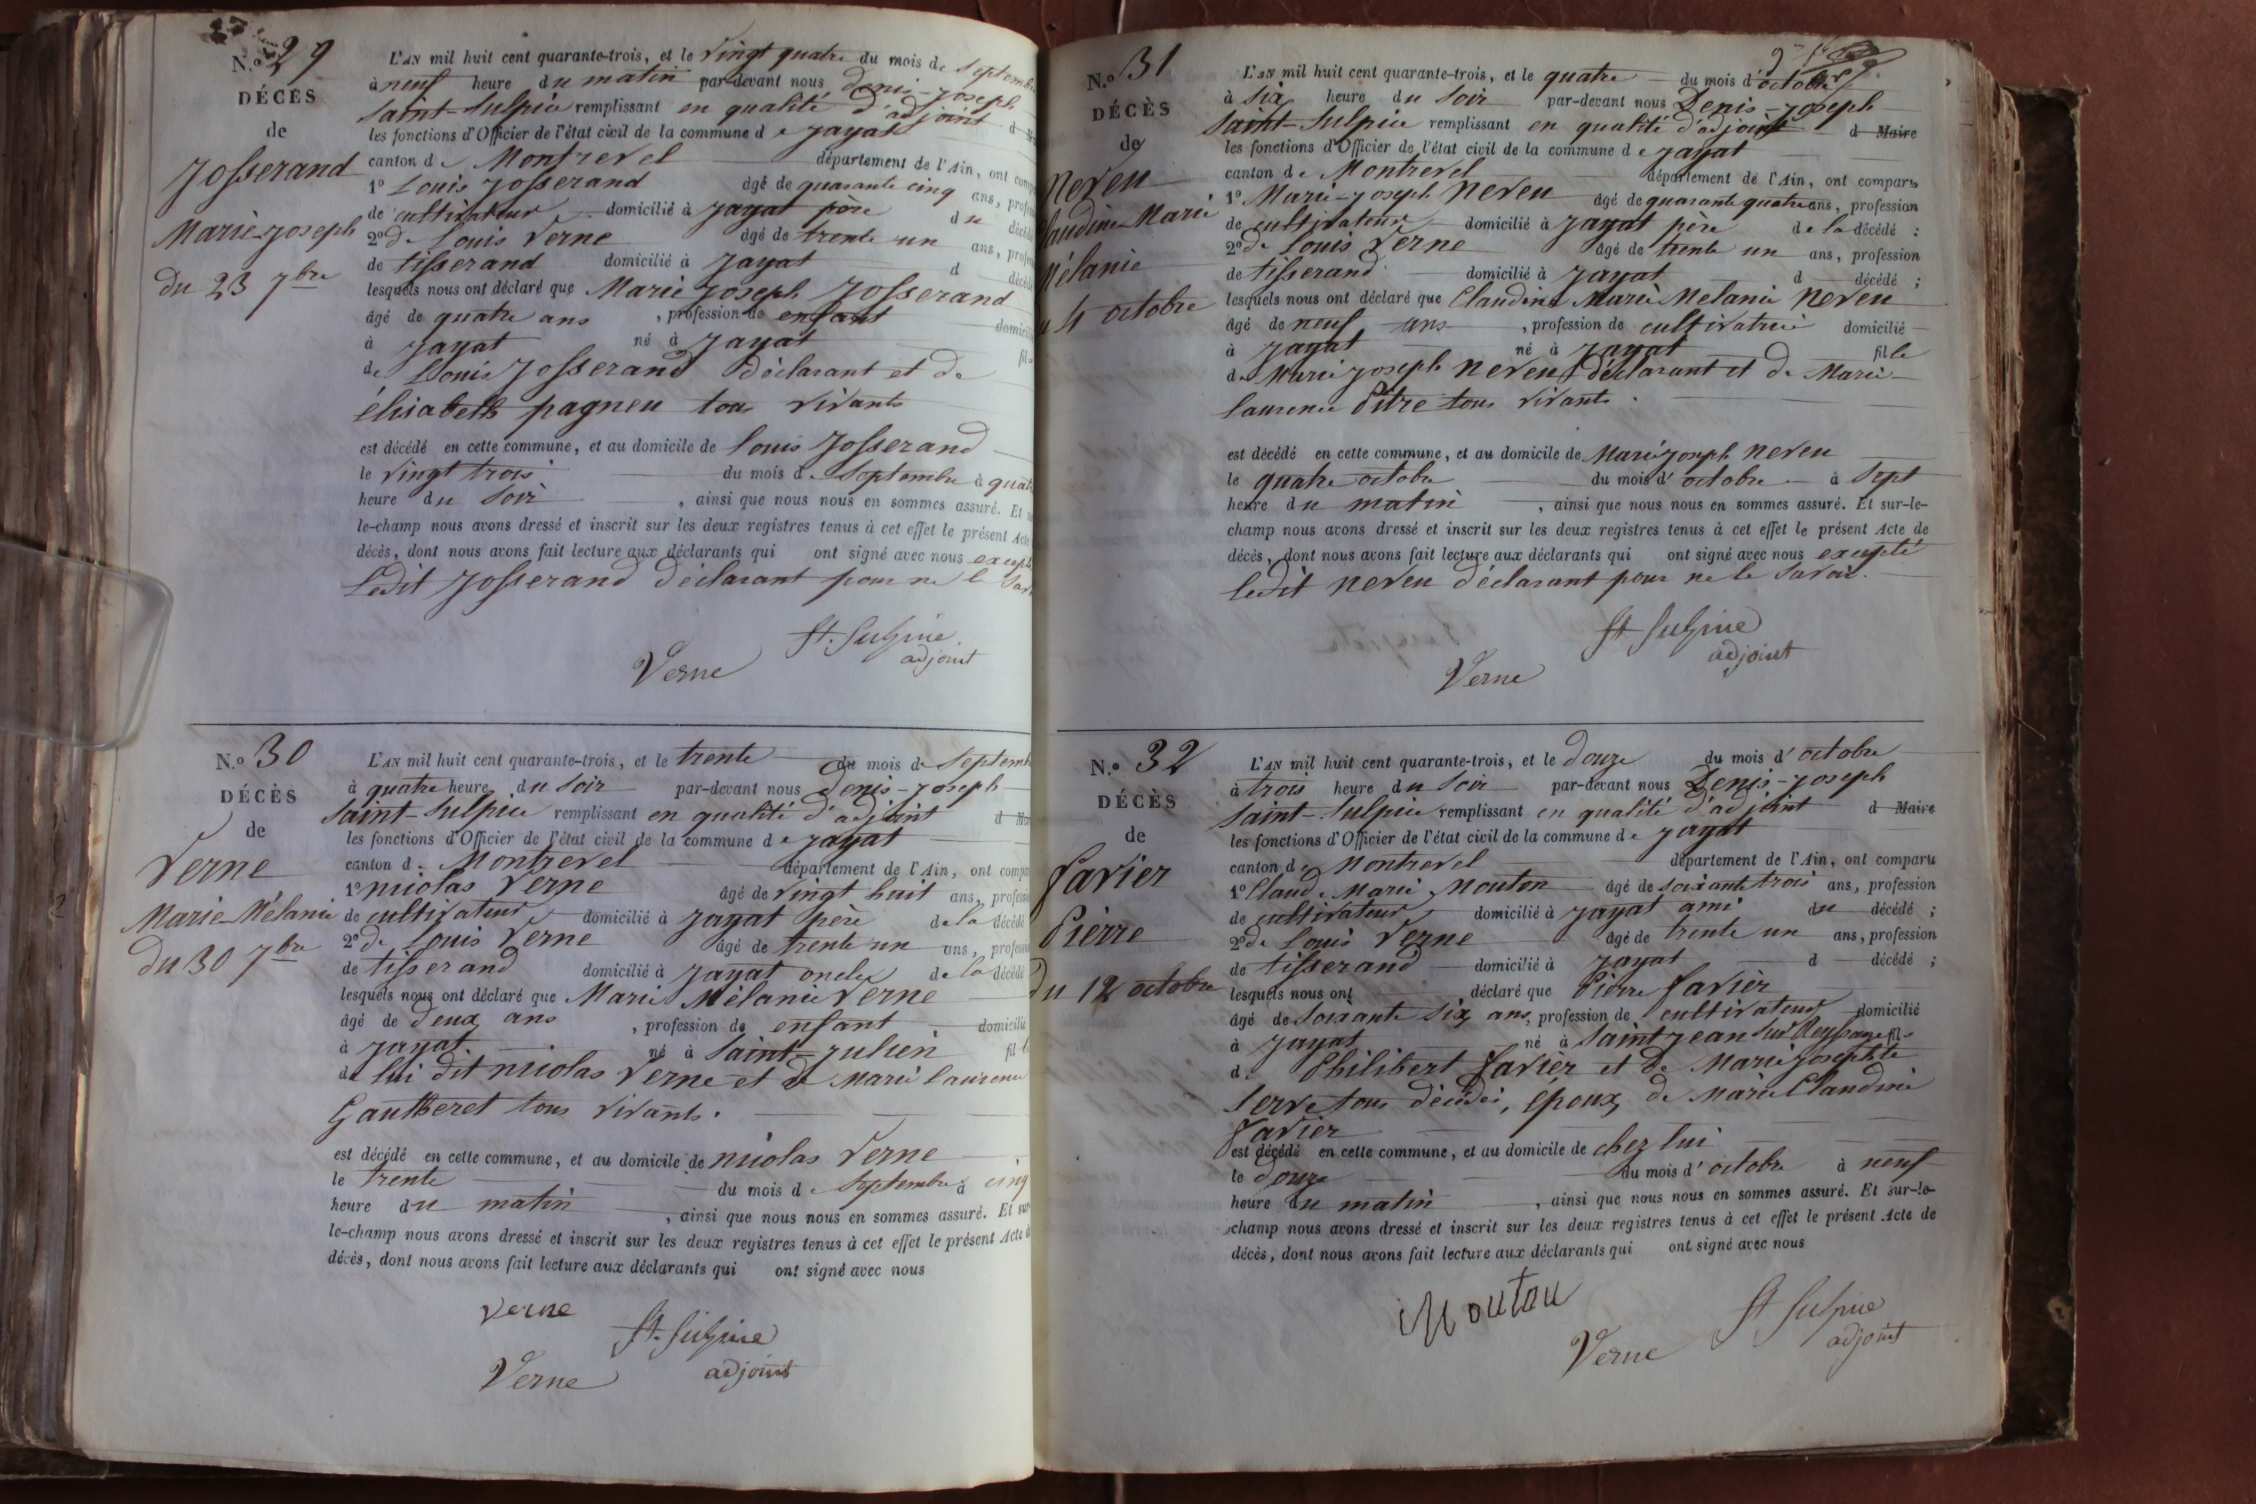 N.º 29
DÉCÈS
de
Josserand
Marie-Joseph
du 23 7bre
L'AN mil huit cent quarante-trois, et le vingt quatre du mois de Septemb
à neuf heure du matin par-devant nous Denis-Joseph
Saint-Sulpice remplissant en qualité d'adjoint d
les fonctions d'Officier de l'état civil de la commune de Jayat
canton de Montrevel département de l'Ain, ont comp
1º Louis Josserand âgé de quarante cinq ans, profes
de cultivateur domicilié à Jayat père du décédé
2º de Louis Verne âgé de trente un ans, profes
de tisserand domicilié à Jayat d décédé
lesquels nous ont déclaré que Marie Joseph Josserand
âgé de quatre ans, profession de enfant domicilié
à Jayat né à Jayat fil
de Louis Josserand déclarant et de
élisabeth pagneu tous vivants
est décédé en cette commune, et au domicile de Louis Josserand
le vingt trois du mois de Septembre à quatre
heure du soir, ainsi que nous nous en sommes assuré. Et
le-champ nous avons dressé et inscrit sur les deux registres tenus à cet effet le présent Acte
décès, dont nous avons fait lecture aux déclarants qui ont signé avec nous excepté
ledit Josserand déclarant pour ne le savoir
St. Sulpice
adjoint
Verne
N.º 30
DÉCÈS
de
Verne
Marie-Mélanie
du 30 7bre
L'AN mil huit cent quarante-trois, et le trente du mois de Septemb
à quatre heure du soir par-devant nous Denis-Joseph
Saint-Sulpice remplissant en qualité d'adjoint d
les fonctions d'Officier de l'état civil de la commune de Jayat
canton de Montrevel département de l'Ain, ont compa
1º nicolas Verne âgé de vingt huit ans, profess
de cultivateur domicilié à Jayat père de la décédé
2º de Louis Verne âgé de trente un ans, profess
de tisserand domicilié à Jayat oncle de la décédé
lesquels nous ont déclaré que Marie Mélanie Verne
âgé de deux ans, profession de enfant domicilié
à Jayat né à Saint-Julien fille
de lui dit nicolas Verne et de Marie Laurence
Gautheret tous vivants.
est décédé en cette commune, et au domicile de nicolas Verne
le trente du mois de Septembre à cinq
heure du matin, ainsi que nous nous en sommes assuré. Et sur
le-champ nous avons dressé et inscrit sur les deux registres tenus à cet effet le présent Acte de
décès, dont nous avons fait lecture aux déclarants qui ont signé avec nous
Verne
St. Sulpice
Verne
adjoint
N.º 31
DÉCÈS
de
Neveu
Claudine Marie
Mélanie
u 4 octobre
L'AN mil huit cent quarante-trois, et le quatre du mois d'octobre
à six heure du soir par-devant nous Denis-Joseph
Saint-Sulpice remplissant en qualité d'adjoint d Maire
les fonctions d'Officier de l'état civil de la commune de Jayat
canton de Montrevel département de l'Ain, ont comparu
1º Marie-Joseph Neveu âgé de quarante quatre ans, profession
de cultivateur domicilié à Jayat père de la décédé :
2º de Louis Verne âgé de trente un ans, profession
de tisserand domicilié à Jayat d décédé ;
lesquels nous ont déclaré que Claudine Marie Melanie Neveu
âgé de neuf ans, profession de cultivatrice domicilié
à Jayat né à Jayat fille
de Marie Joseph Neveu déclarant et de Marie
laurence Pitre tous vivants.
est décédé en cette commune, et au domicile de Marie Joseph Neveu
le quatre octobre du mois d'octobre à sept
heure du matin, ainsi que nous nous en sommes assuré. Et sur-le-
champ nous avons dressé et inscrit sur les deux registres tenus à cet effet le présent Acte de
décès, dont nous avons fait lecture aux déclarants qui ont signé avec nous excepté
ledit Neveu déclarant pour ne le savoir.
St Sulpice
adjoint
Verne
N.º 32
DÉCÈS
de
Favier
Pierre
du 12 octobre
L'AN mil huit cent quarante-trois, et le douze du mois d'octobre
à trois heure du soir par-devant nous Denis-Joseph
Saint-Sulpice remplissant en qualité d'adjoint d Maire
les fonctions d'Officier de l'état civil de la commune de Jayat
canton de Montrevel département de l'Ain, ont comparu
1º Claude Marie Mouton âgé de soixante trois ans, profession
de cultivateur domicilié à Jayat ami du décédé ;
2º de Louis Verne âgé de trente un ans, profession
de tisserand domicilié à Jayat d décédé ;
lesquels nous ont déclaré que Pierre Favier
âgé de soixante six ans, profession de cultivateur domicilié
à Jayat né à Saint Jean sur Reyssouze fils
de Philibert Favier et de Marie Josephte
Serve tous décédés, époux de Marie Claudine
Favier
est décédé en cette commune, et au domicile de chez lui
le douze du mois d'octobre à neuf
heure du matin, ainsi que nous nous en sommes assuré. Et sur-le-
champ nous avons dressé et inscrit sur les deux registres tenus à cet effet le présent Acte de
décès, dont nous avons fait lecture aux déclarants qui ont signé avec nous
Moutou
St Sulpice
Verne
adjoint